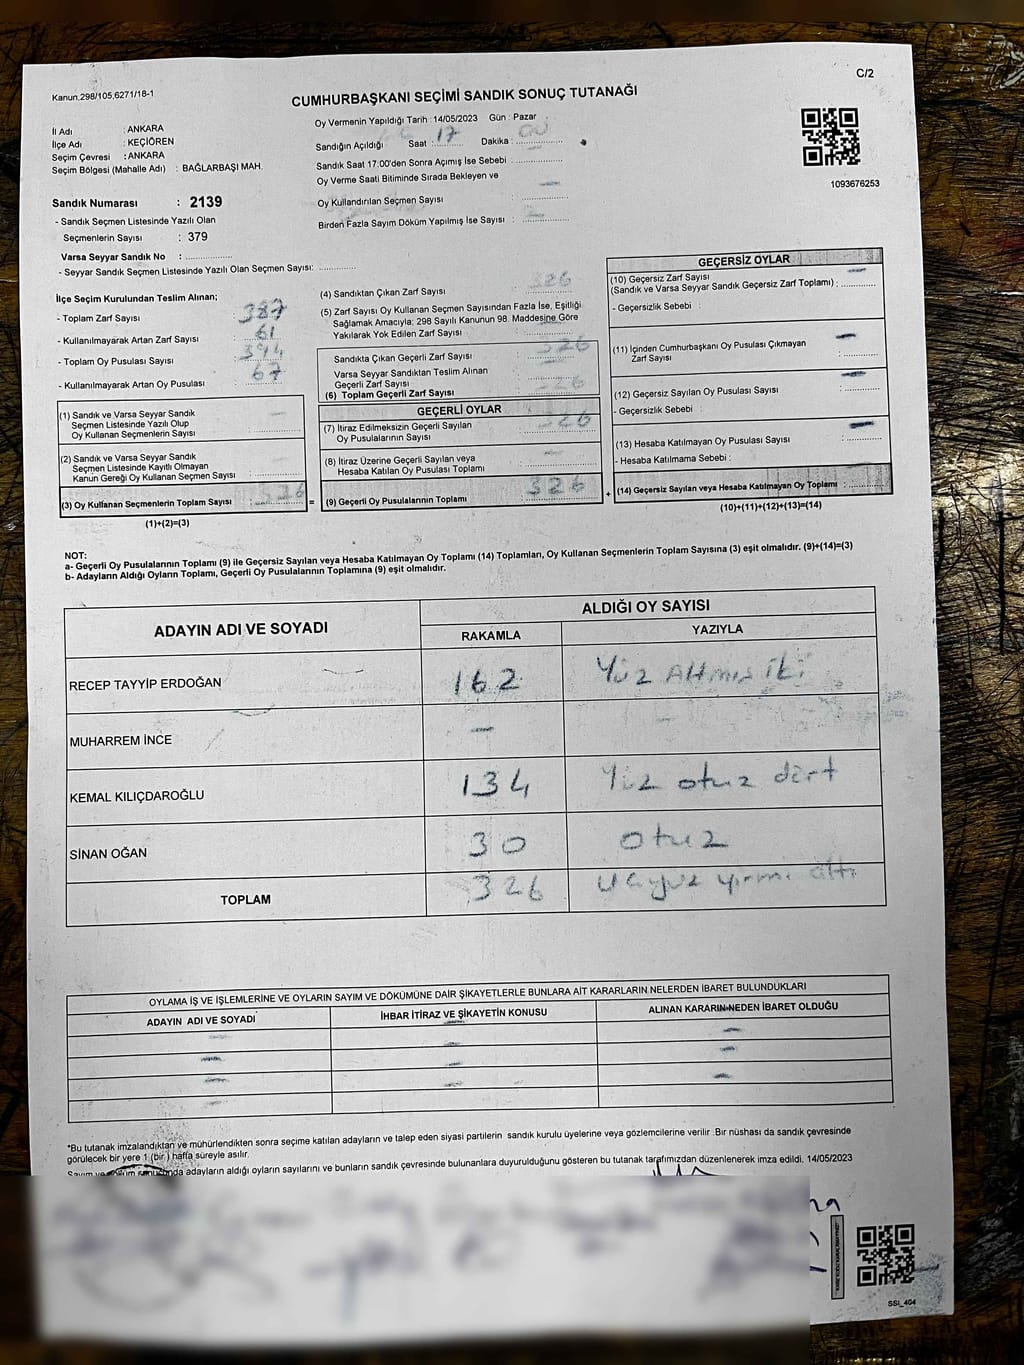 C/2
Kanun.298/105,6271/18-1
CUMHURBAŞKANI SEÇİMİ SANDIK SONUÇ TUTANAĞI
İl Adı : ANKARA
İlçe Adı : KEÇİÖREN
Seçim Çevresi : ANKARA
Seçim Bölgesi (Mahalle Adı) : BAĞLARBAŞI MAH.
Sandık Numarası : 2139
- Sandık Seçmen Listesinde Yazılı Olan
Seçmenlerin Sayısı : 379
Varsa Seyyar Sandık No :
- Seyyar Sandık Seçmen Listesinde Yazılı Olan Seçmen Sayısı:
Oy Vermenin Yapıldığı Tarih : 14/05/2023 Gün : Pazar
Sandığın Açıldığı Saat : 17 Dakika : 00
Sandık Saat 17:00'den Sonra Açımış İse Sebebi :
Oy Verme Saati Bitiminde Sırada Bekleyen ve
Oy Kullandırılan Seçmen Sayısı :
Birden Fazla Sayım Döküm Yapılmış İse Sayısı :
1093676253
İlçe Seçim Kurulundan Teslim Alınan;
- Toplam Zarf Sayısı : 387
- Kullanılmayarak Artan Zarf Sayısı : 61
- Toplam Oy Pusulası Sayısı : 394
- Kullanılmayarak Artan Oy Pusulası : 67
(1) Sandık ve Varsa Seyyar Sandık
Seçmen Listesinde Yazılı Olup
Oy Kullanan Seçmenlerin Sayısı
(2) Sandık ve Varsa Seyyar Sandık
Seçmen Listesinde Kayıtlı Olmayan
Kanun Gereği Oy Kullanan Seçmen Sayısı
(3) Oy Kullanan Seçmenlerin Toplam Sayısı : 326 =
(1)+(2)=(3)
(4) Sandıktan Çıkan Zarf Sayısı : 326
(5) Zarf Sayısı Oy Kullanan Seçmen Sayısından Fazla İse, Eşitliği
Sağlamak Amacıyla; 298 Sayılı Kanunun 98. Maddesine Göre
Yakılarak Yok Edilen Zarf Sayısı :
Sandıkta Çıkan Geçerli Zarf Sayısı : 326
Varsa Seyyar Sandıktan Teslim Alınan
Geçerli Zarf Sayısı
(6) Toplam Geçerli Zarf Sayısı : 326
GEÇERLİ OYLAR
(7) İtiraz Edilmeksizin Geçerli Sayılan
Oy Pusulalarının Sayısı : 326
(8) İtiraz Üzerine Geçerli Sayılan veya
Hesaba Katılan Oy Pusulası Toplamı :
(9) Geçerli Oy Pusulalarının Toplamı : 326 +
GEÇERSİZ OYLAR
(10) Geçersiz Zarf Sayısı
(Sandık ve Varsa Seyyar Sandık Geçersiz Zarf Toplamı) :
- Geçersizlik Sebebi :
(11) İçinden Cumhurbaşkanı Oy Pusulası Çıkmayan
Zarf Sayısı :
(12) Geçersiz Sayılan Oy Pusulası Sayısı :
- Geçersizlik Sebebi :
(13) Hesaba Katılmayan Oy Pusulası Sayısı :
- Hesaba Katılmama Sebebi :
(14) Geçersiz Sayılan veya Hesaba Katılmayan Oy Toplamı :
(10)+(11)+(12)+(13)=(14)
NOT:
a- Geçerli Oy Pusulalarının Toplamı (9) ile Geçersiz Sayılan veya Hesaba Katılmayan Oy Toplamı (14) Toplamları, Oy Kullanan Seçmenlerin Toplam Sayısına (3) eşit olmalıdır. (9)+(14)=(3)
b- Adayların Aldığı Oyların Toplamı, Geçerli Oy Pusulalarının Toplamına (9) eşit olmalıdır.
ADAYIN ADI VE SOYADI
ALDIĞI OY SAYISI
RAKAMLA YAZIYLA
RECEP TAYYİP ERDOĞAN 162 Yüz Altmış İki
MUHARREM İNCE -
KEMAL KILIÇDAROĞLU 134 Yüz otuz dört
SİNAN OĞAN 30 otuz
TOPLAM 326 Üçyüz yirmi altı
OYLAMA İŞ VE İŞLEMLERİNE VE OYLARIN SAYIM VE DÖKÜMÜNE DAİR ŞİKAYETLERLE BUNLARA AİT KARARLARIN NELERDEN İBARET BULUNDUKLARI
ADAYIN ADI VE SOYADI İHBAR İTİRAZ VE ŞİKAYETİN KONUSU ALINAN KARARIN NEDEN İBARET OLDUĞU
*Bu tutanak imzalandıktan ve mühürlendikten sonra seçime katılan adayların ve talep eden siyasi partilerin sandık kurulu üyelerine veya gözlemcilerine verilir. Bir nüshası da sandık çevresinde
görülecek bir yere 1 (bir) hafta süreyle asılır.
adayların aldığı oyların sayılarını ve bunların sandık çevresinde bulunanlara duyurulduğunu gösteren bu tutanak tarafımızdan düzenlenerek imza edildi. 14/05/2023